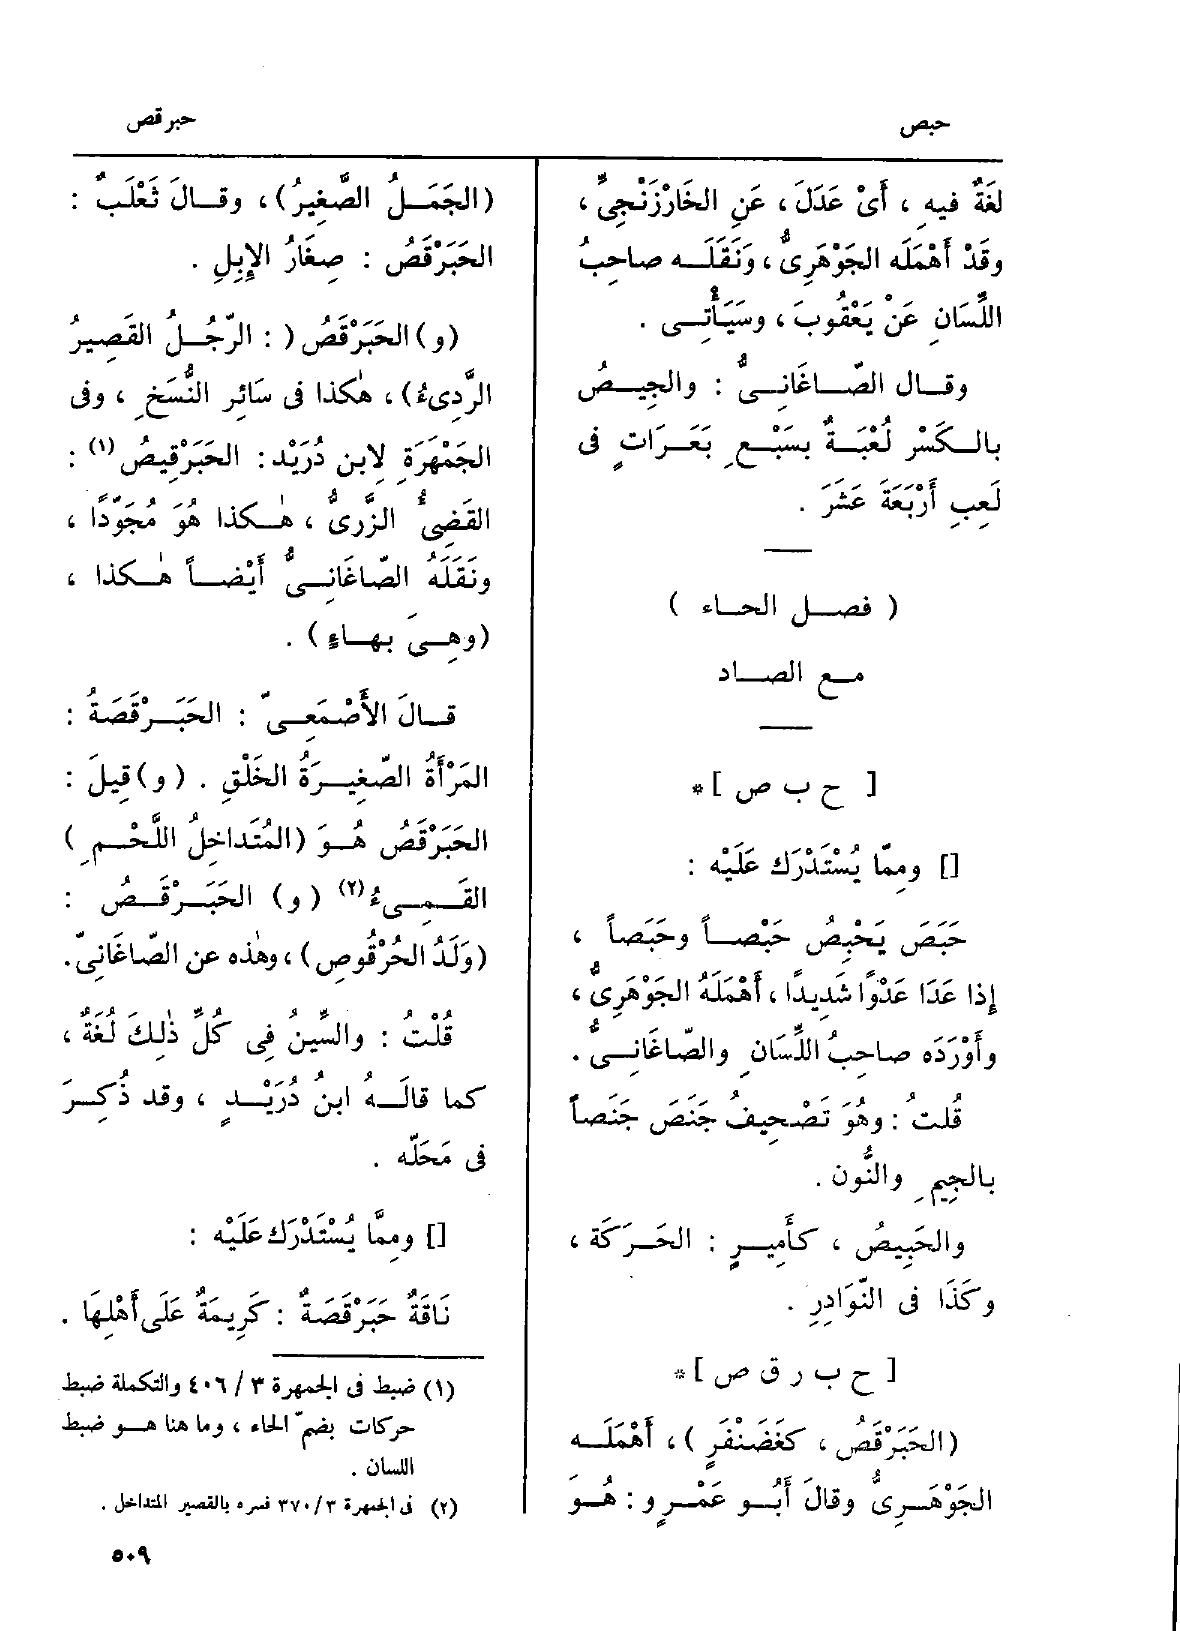 حبص
حبرقص
لغَةٌ فيهِ ، أَىْ عَدَلَ ، عَنِ الخَارْزَنْجِىِّ ،
وقَدْ أَهْمَلَه الجَوْهَرِىُّ ، ونَقَلَه صاحِبُ
اللِّسَانِ عَنْ يَعْقُوبَ ، وسَيَأْتِى .
وقال الصّاغَانِىُّ : والجِيصُ
بالكَسْرِ لُعْبَةٌ بسَبْعِ بَعَرَاتٍ فى
لَعِبِ أَرْبَعَةَ عَشَرَ .
( فصل الحاء )
مع الصاد
[ ح ب ص ] *
[] ومِمّا يُسْتَدْرَك عَلَيْه :
حَبَصَ يَحْبِصُ حَبْصاً وحَبَصاً ،
إِذا عَدَا عَدْوًا شَدِيدًا ، أَهْمَلَهُ الجَوْهَرِىُّ ،
وأَوْرَدَه صاحِبُ اللِّسَانِ والصّاغَانِىُّ .
قُلتُ : وهُوَ تَصْحِيفُ جَنَصَ جَنَصاً
بالجِيمِ والنُّون .
والحَبِيصُ ، كأَمِيرٍ : الحَرَكَة ،
وكَذَا فى النَّوَادِرِ .
[ ح ب ر ق ص ] *
(الحَبَرْقَصُ ، كغَضَنْفَرٍ ) ، أَهْمَلَه
الجَوْهَرِىُّ وقالَ أَبُو عَمْرٍو : هُوَ
(الجَمَلُ الصَّغِيرُ) ، وقالَ ثَعْلَبٌ :
الحَبَرْقَصُ : صِغَارُ الإِبِلِ .
(و) الحَبَرْقَصُ ( : الرَّجُلُ القَصِيرُ
الرَّدِىءُ) ، هٰكذا فى سَائِرِ النُّسَخِ ، وفى
الجَمْهَرَةِ لابن دُرَيْد : الحَبَرْقِيصُ (١) :
القَضِىُّ الزَّرِىُّ ، هٰكذا هُوَ مُجَوَّدًا ،
ونَقَلَهُ الصّاغَانِىُّ أَيْضاً هٰكذا ،
(وهِىَ بهاءٍ) .
قالَ الأَصْمَعِىّ : الحَبَرْقَصَةُ :
المَرْأَةُ الصَّغِيرَةُ الخَلْقِ . (و) قِيلَ :
الحَبَرْقَصُ هُوَ (المُتَداخِلُ اللَّحْمِ)
القَمِىءُ (٢) (و) الحَبَرْقَصُ :
(وَلَدُ الحُرْقُوصِ) ، وهٰذه عن الصّاغَانِىّ .
قُلْتُ : والسِّينُ فِى كُلِّ ذٰلِكَ لُغَةٌ ،
كما قالَهُ ابنُ دُرَيْدٍ ، وقد ذُكِرَ
فى مَحَلّه .
[] ومِمَّا يُسْتَدْرَك عَلَيْه :
نَاقَةٌ حَبَرْقَصَةٌ : كَرِيمَةٌ عَلَى أَهْلِهَا .
(١) ضبط فى الجمهرة ٣ / ٤٠٦ والتكملة ضبط
حركات بضمّ الحاء ، وما هنا هو ضبط
اللسان .
(٢) فى الجمهرة ٣ / ٣٧٠ فسره بالقصير المتداخل .
٥٠٩